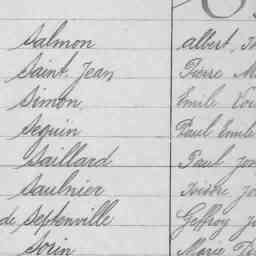 Salmon Albert,
Saint Jean Pierre
Simon, Emile
Seguin Paul Emile
Saillard Paul
Saulnier
de Septenville Geffroy
Sorin Marie